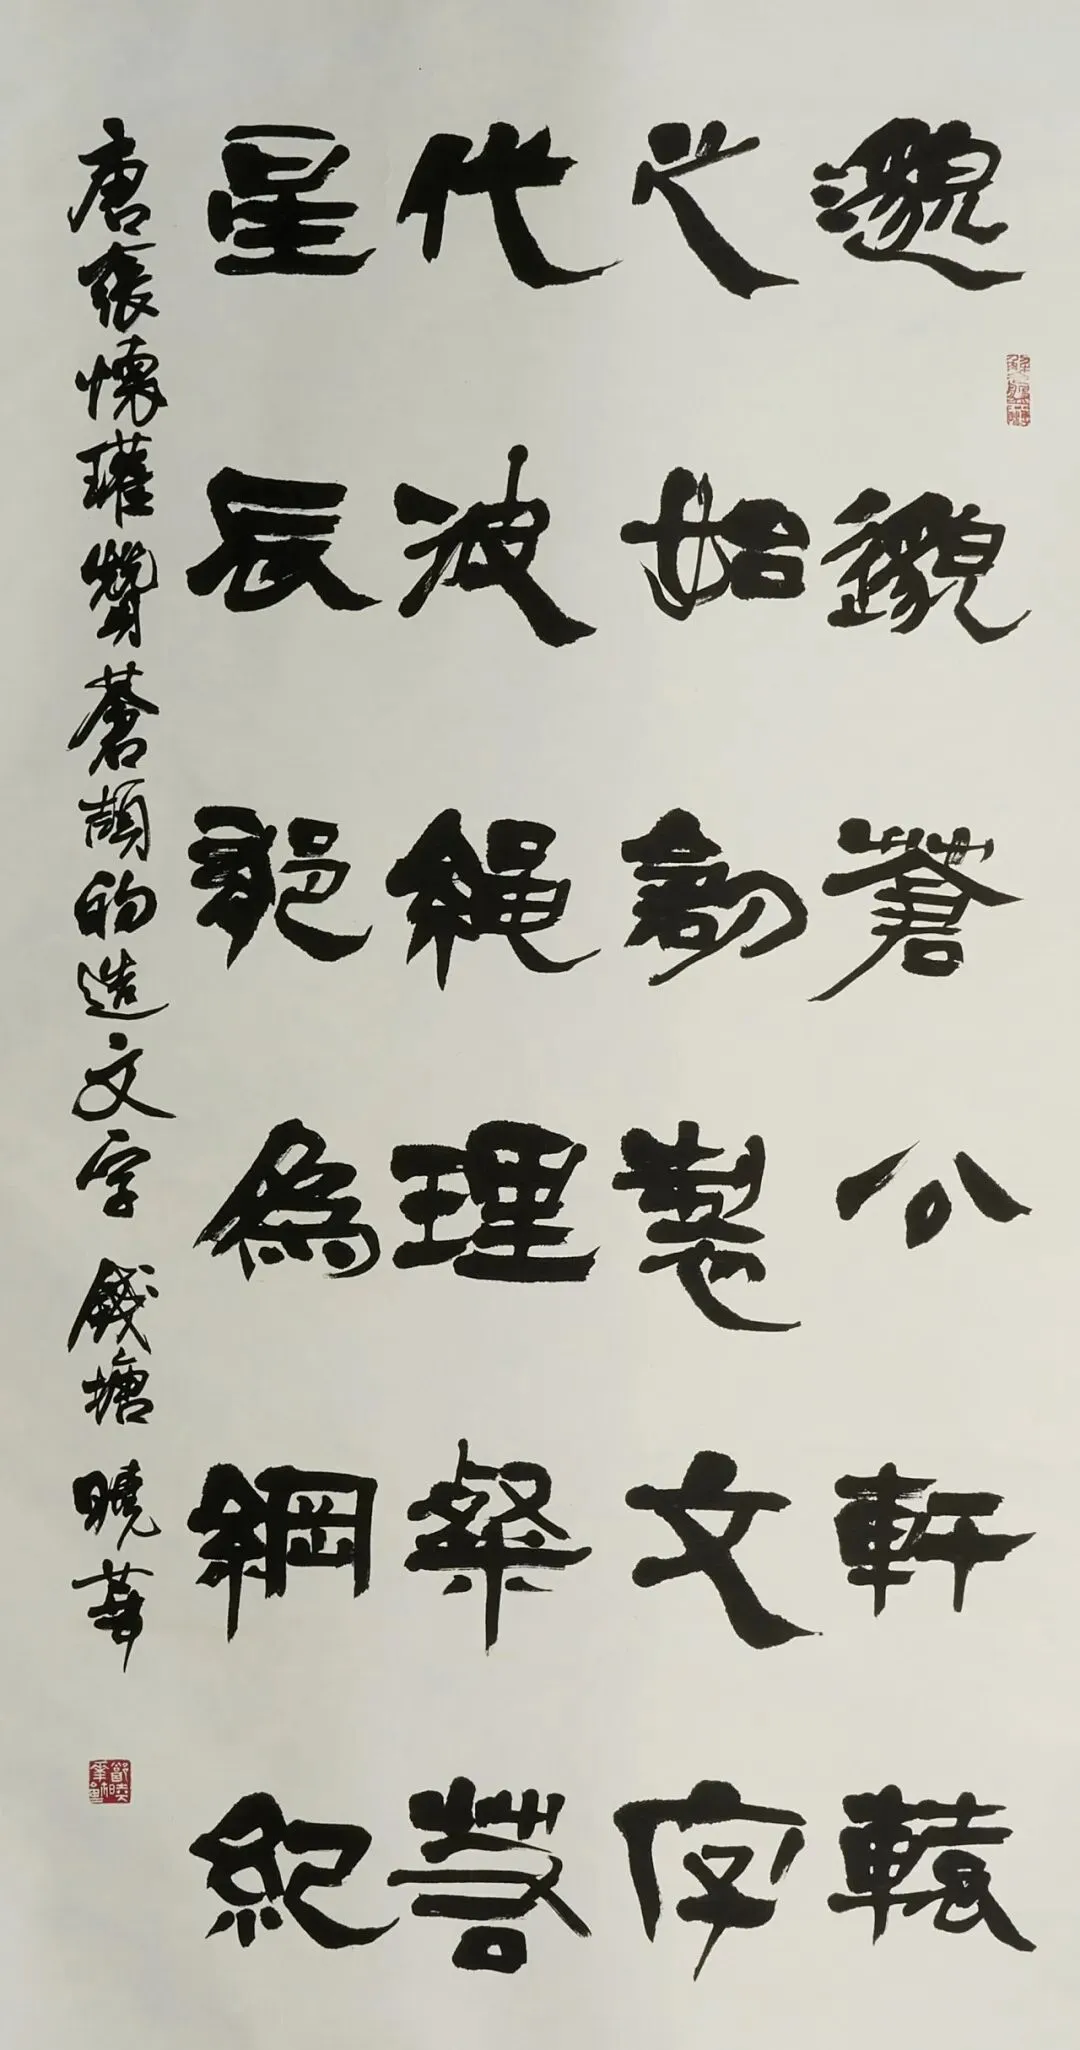 邈邈蒼公軒轅
之始創製文字
代彼繩理粲若
星辰郁為綱紀
唐張懷瓘贊蒼頡的造文字 錢塘 曉華